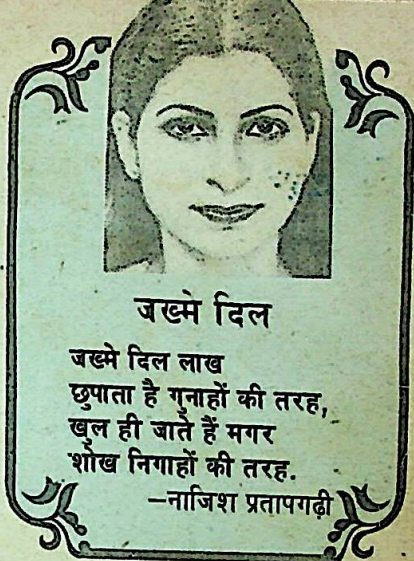 जख्मे दिल
जख्मे दिल लाख
छुपाता है गुनाहों की तरह,
खुल ही जाते हैं मगर
शोख निगाहों की तरह.
—नाजिश प्रतापगढ़ी